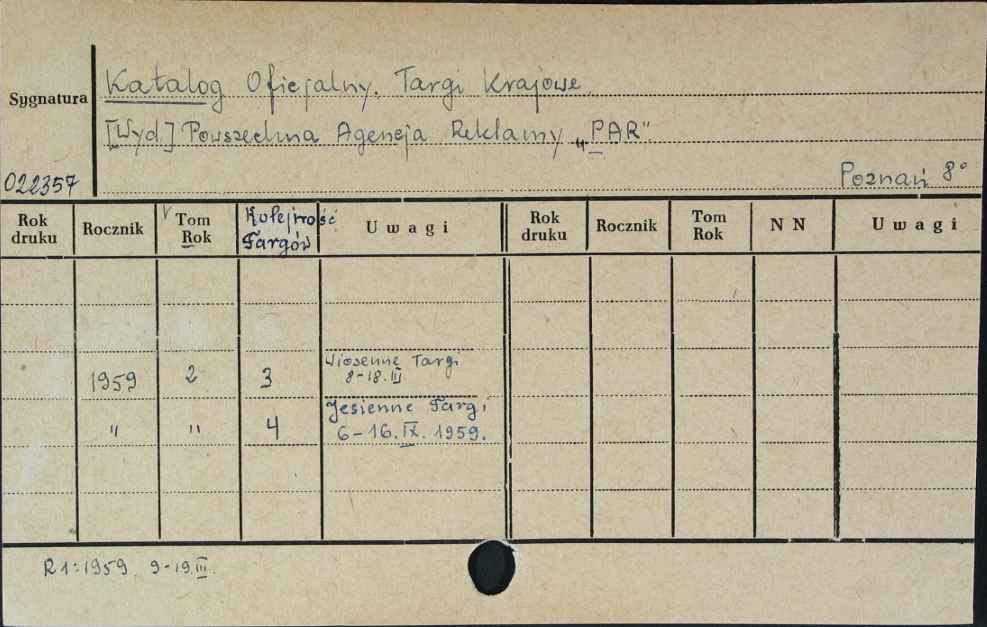 Katalog Oficjalny. Targi Krajowe
Sygnatura
[Wyd.] Powszechna Agencja Reklamy „PAR"
022357
Poznań 8°
Rok druku Rocznik V Tom Rok Kolejność Targów Uwagi Rok druku Rocznik Tom Rok NN Uwagi
1959 2 3 Wiosenne Targi
8-18.III
" " 4 Jesienne Targi
6-16.IX. 1959.
R1:1959 9-19.III